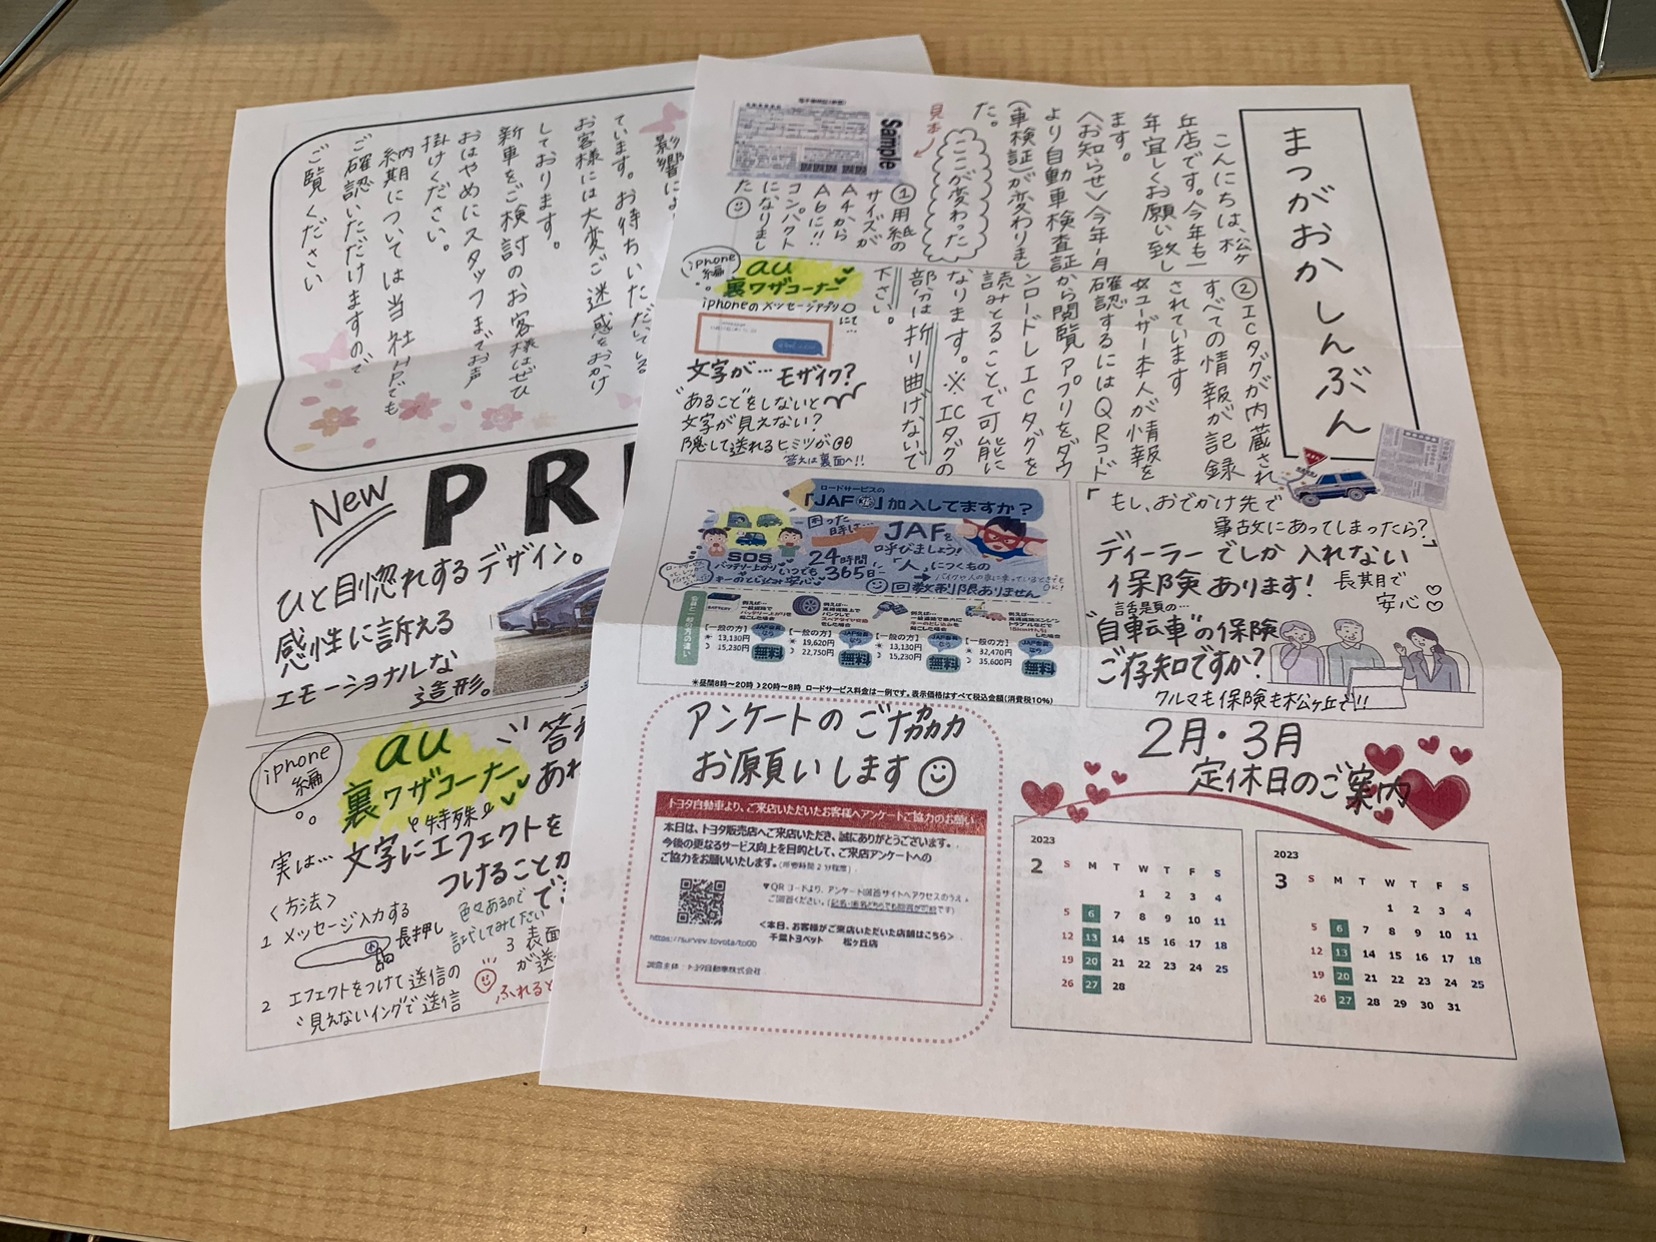 まつがおかしんぶん
こんにちは、松ヶ
丘店です。今年も一
年宜しくお願い致し
ます。
〈お知らせ〉今年1月
より自動車検査証
(車検証)が変わりまし
た。
ここが変わった
見本
Sample
①用紙の
サイズが
A4から
A6に!!
コンパクト
になりまし
た
②ICタグが内蔵され
すべての情報が記録
されています
女ユーザー本人が情報を
確認するにはQRコード
から閲覧アプリをダウ
ンロードしICタグを
読みとることで可能に
なります。※ICタグの
部分は折り曲げないで
下さい。
iphone
編
au
裏ワザコーナー
iphoneのメッセージアプリ
にて…
文字が…モザイク?
"あること"をしないと
文字が見えない?
隠して送れるヒミツが
答えは裏面へ!!
ロードサービスの
「JAF」加入してますか?
困った
時は…
JAFを
呼びましょう!
SOS
バッテリー上がり
キーのとじこみ
いつでも
安心
24時間
365日
「人」につくもの
→バイクや人の車に乗っているときでも
OK!
回数制限ありません
会員と一般の方の違い
BATTERY
例えば…
一般道路で
バッテリー上がりを
起こした場合
【一般の方】
☀ 13,130円
☽ 15,230円
JAF会員
なら
無料
例えば…
高速道路上で
パンクして
スペアタイヤ交換
をした場合
【一般の方】
☀ 19,620円
☽ 22,750円
JAF会員
なら
無料
例えば…
一般道路で車内に
キーのとじ込みを
起こした場合
【一般の方】
☀ 13,130円
☽ 15,230円
JAF会員
なら
無料
例えば…
高速道路エンジン
トラブルなどで
した場合
【一般の方】
☀ 32,470円
☽ 35,600円
JAF会員
なら
無料
☀昼間8時~20時 ☽20時~8時 ロードサービス料金は一例です。表示価格はすべて税込金額(消費税10%)
「もし、おでかけ先で
事故にあってしまったら?」
ディーラーでしか入れない
保険あります!
長期で
安心♡
話題の…
"自転車"の保険
ご存知ですか?
クルマも保険も松ヶ丘で!!
アンケートのご協力
お願いします
トヨタ自動車より、ご来店いただいたお客様へアンケートご協力のお願い
本日は、トヨタ販売店へご来店いただき、誠にありがとうございます。
今後の更なるサービス向上を目的として、ご来店アンケートへの
ご協力をお願いいたします。(所要時間2分程度)
▼QRコードより、アンケート回答サイトへアクセスのうえ、
ご回答ください。
<本日、お客様がご来店いただいた店舗はこちら>
千葉トヨペット 松ヶ丘店
調査主体:トヨタ自動車株式会社
2月・3月
定休日のご案内
2023
2
S M T W T F S
1 2 3 4
5 6 7 8 9 10 11
12 13 14 15 16 17 18
19 20 21 22 23 24 25
26 27 28
2023
3
S M T W T F S
1 2 3 4
5 6 7 8 9 10 11
12 13 14 15 16 17 18
19 20 21 22 23 24 25
26 27 28 29 30 31
影響によ
ています。お待ちいただいている
お客様には大変ご迷惑をおかけ
しております。
新車をご検討のお客様はぜひ
おはやめにスタッフまでお声
掛けください。
納期については当社HPでも
ご確認いただけますので
ご覧ください
New
PRI
ひと目惚れするデザイン。
感性に訴える
エモーショナルな
造形。
iphone
編
au
裏ワザコーナー
答え
あれ
実は…
特殊
文字にエフェクトを
つけることが
でき
〈方法〉
1 メッセージ入力する
長押し
色々あるので
試してみて下さい
2 エフェクトをつけて送信の
見えないインクで送信
3 表面
が送
ふれると